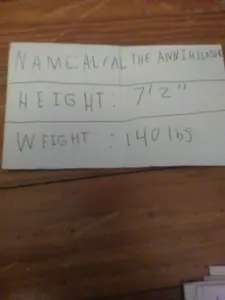 NAME: AL/AL THE ANNIHILATOR
HEIGHT: 7'2"
WEIGHT: 140 lbs